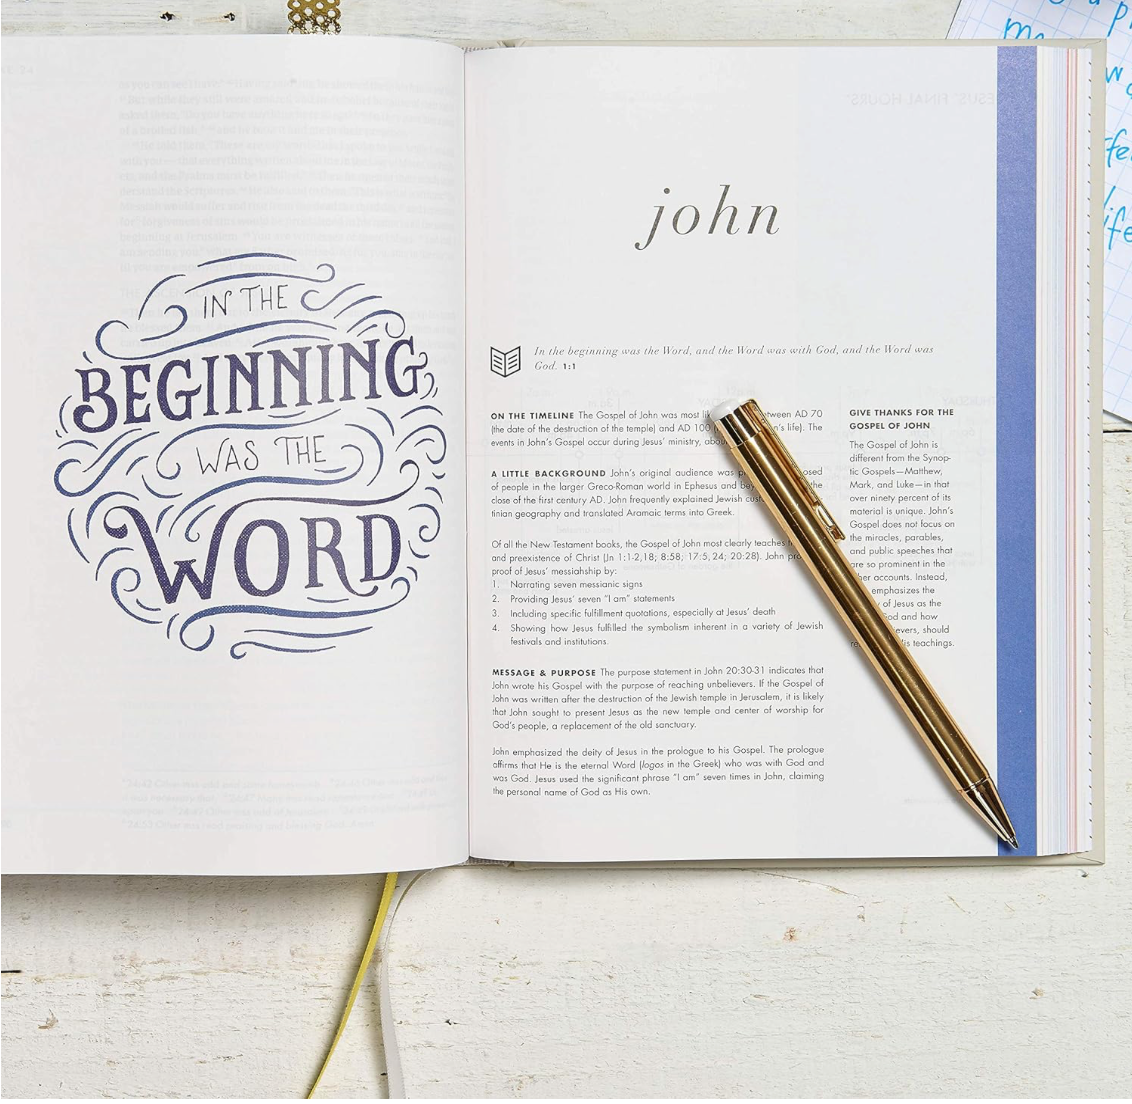 IN THE
BEGINNING
WAS THE
WORD
john
In the beginning was the Word, and the Word was with God, and the Word was
God. 1:1
ON THE TIMELINE The Gospel of John was most between AD 70
(the date of the destruction of the temple) and AD 100 life). The
events in John's Gospel occur during Jesus' ministry,
A LITTLE BACKGROUND John's original audience was
of people in the larger Greco-Roman world in Ephesus and the
close of the first century AD. John frequently explained Jewish
tinian geography and translated Aramaic terms into Greek.
Of all the New Testament books, the Gospel of John most clearly teaches
and preexistence of Christ (Jn 1:1-2,18; 8:58; 17:5, 24; 20:28). John
proof of Jesus' messiahship by:
1. Narrating seven messianic signs
2. Providing Jesus' seven "I am" statements
3. Including specific fulfillment quotations, especially at Jesus' death
4. Showing how Jesus fulfilled the symbolism inherent in a variety of Jewish
festivals and institutions.
MESSAGE & PURPOSE The purpose statement in John 20:30-31 indicates that
John wrote his Gospel with the purpose of reaching unbelievers. If the Gospel of
John was written after the destruction of the Jewish temple in Jerusalem, it is likely
that John sought to present Jesus as the new temple and center of worship for
God's people, a replacement of the old sanctuary.
John emphasized the deity of Jesus in the prologue to his Gospel. The prologue
affirms that He is the eternal Word (logos in the Greek) who was with God and
was God. Jesus used the significant phrase "I am" seven times in John, claiming
the personal name of God as His own.
GIVE THANKS FOR THE
GOSPEL OF JOHN
The Gospel of John is
different from the Synop-
tic Gospels—Matthew,
Mark, and Luke—in that
over ninety percent of its
material is unique. John's
Gospel does not focus on
the miracles, parables,
and public speeches that
are so prominent in the
other accounts. Instead,
emphasizes the
of Jesus as the
God and how
should
his teachings.